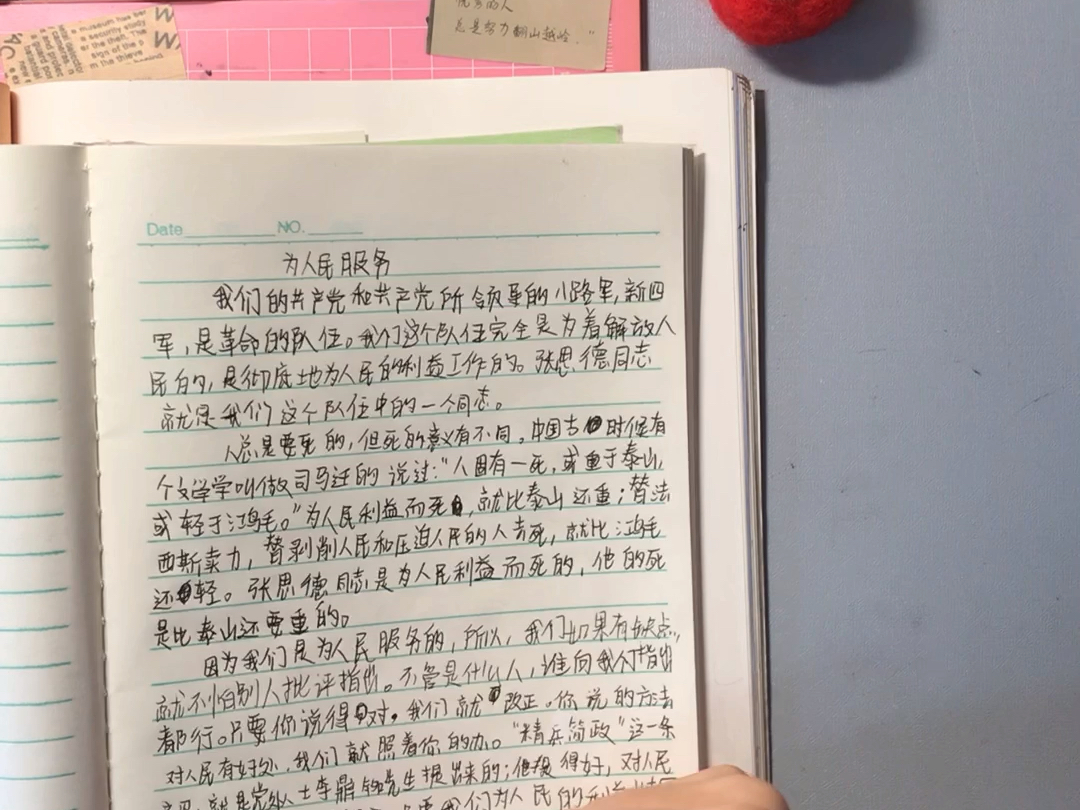 museum has be
security study
the them. The
sign of the s
m the thieve
优秀的人
总是努力翻山越岭."
Date NO.
为人民服务
我们的共产党和共产党所领导的八路军,新四
军,是革命的队伍。我们这个队伍完全是为着解放人
民的,是彻底地为人民的利益工作的。张思德同志
就是我们这个队伍中的一个同志。
人总是要死的,但死的意义有不同。中国古时候有
个文学学叫做司马迁的说过:"人固有一死,或重于泰山,
或轻于鸿毛。"为人民利益而死,就比泰山还重;替法
西斯卖力,替剥削人民和压迫人民的人去死,就比鸿毛
还轻。张思德同志是为人民利益而死的,他的死
是比泰山还要重的。
因为我们是为人民服务的,所以,我们如果有缺点,
就不怕别人批评指出。不管是什么人,谁向我们指出
都行。只要你说得对,我们就改正。你说的方法
对人民有好处,我们就照着你的办。"精兵简政"这一条
就是党外人士李鼎铭先生提出来的;他提得好,对人民
我们为人民的利益